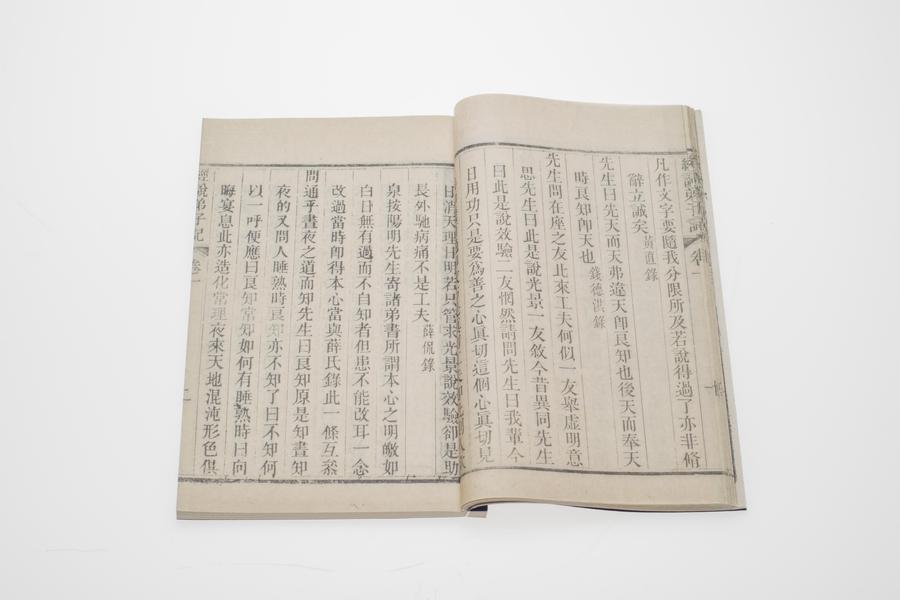 凡作文字要隨我分限所及若說得過了亦非脩
辭立誠矣 黃直錄
先生曰先天而天弗違天卽良知也後天而奉天
時良知卽天也 錢德洪錄
先生問在座之友比來工夫何似一友舉虛明意
思先生曰此是說光景一友敘今昔異同先生
曰此是說效驗二友惘然請問先生曰我輩今
日用功只是要為善之心眞切這個心眞切見
日消天理日明若只管求光景說效驗卻是助
長外馳病痛不是工夫 薛侃錄
泉按陽明先生寄諸弟書所謂本心之明皦如
白日無有過而不自知者但患不能改耳一念
改過當時卽得本心當與薛氏錄此一條互叅
問通乎晝夜之道而知先生曰良知原是知晝知
夜的又問人睡熟時良知亦不知了曰不知何
以一呼便應曰良知常知如何有睡熟時曰向
晦宴息此亦造化常理夜來天地混沌形色俱
經說弟子記 卷一